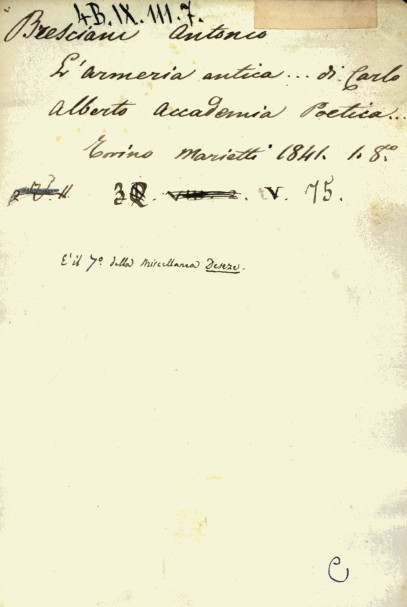 4B.IX.111.7.
Bresciani Antonio
L'armeria antica... di Carlo
Alberto Accademia Poetica...
Torino Marietti 1841. 1. 8.º
32. V. 75.
E' il 7º della Miscellanea
C